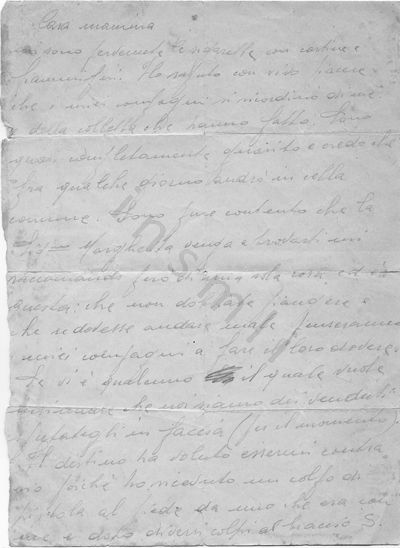 Cara mammina
mi sono pervenute le sigarette con cartine e
fiammiferi. Ho saputo con vivo piacere
che i miei compagni si ricordino di me
e della colletta che hanno fatto. Sono
quasi completamente guarito e credo che
fra qualche giorno andrò in cella
comune. Sono pure contento che la
Sig.na Margherita venga a trovarti mi
raccomando però di una sola cosa, ed è
questa: che non dovete piangere e
che se dovesse andare male penseranno
i miei compagni a fare il loro dovere.
Se vi è qualcuno il quale vuole
che noi siamo dei venduti
sputategli in faccia (per il momento).
Il destino ha voluto essermi contra
rio poiché ho ricevuto un colpo di
pistola al piede da uno che era con
me e dopo diversi colpi al braccio S.
insmli